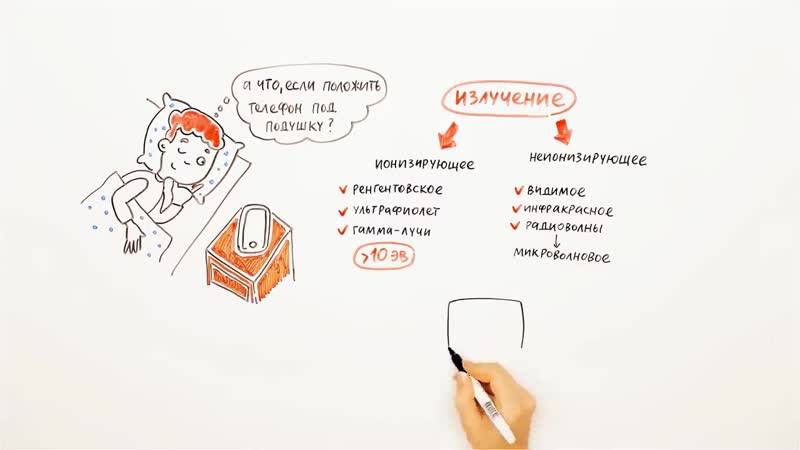 а что, если положить
телефон под
подушку?
излучение
ионизирующее
ренгентовское
ультрафиолет
гамма-лучи
>10 эв
неионизирующее
видимое
инфракрасное
радиоволны
микроволновое